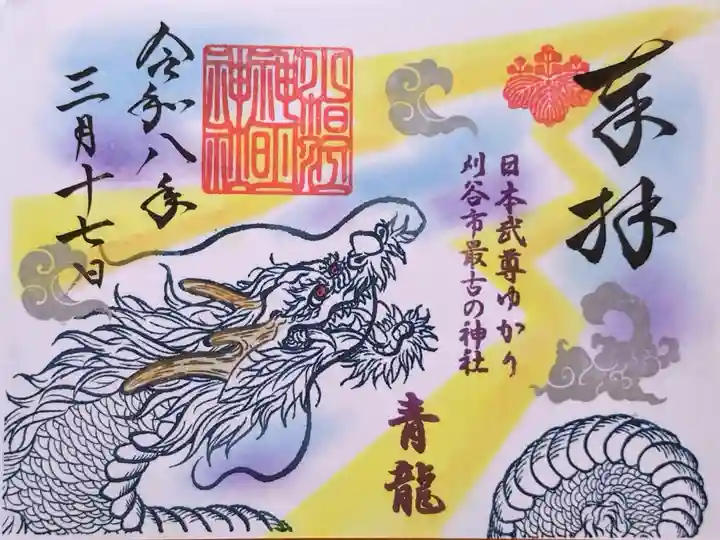 奉拝
日本武尊ゆかり
刈谷市最古の神社
青龍
小垣江
神明
神社
令和八年
三月十七日